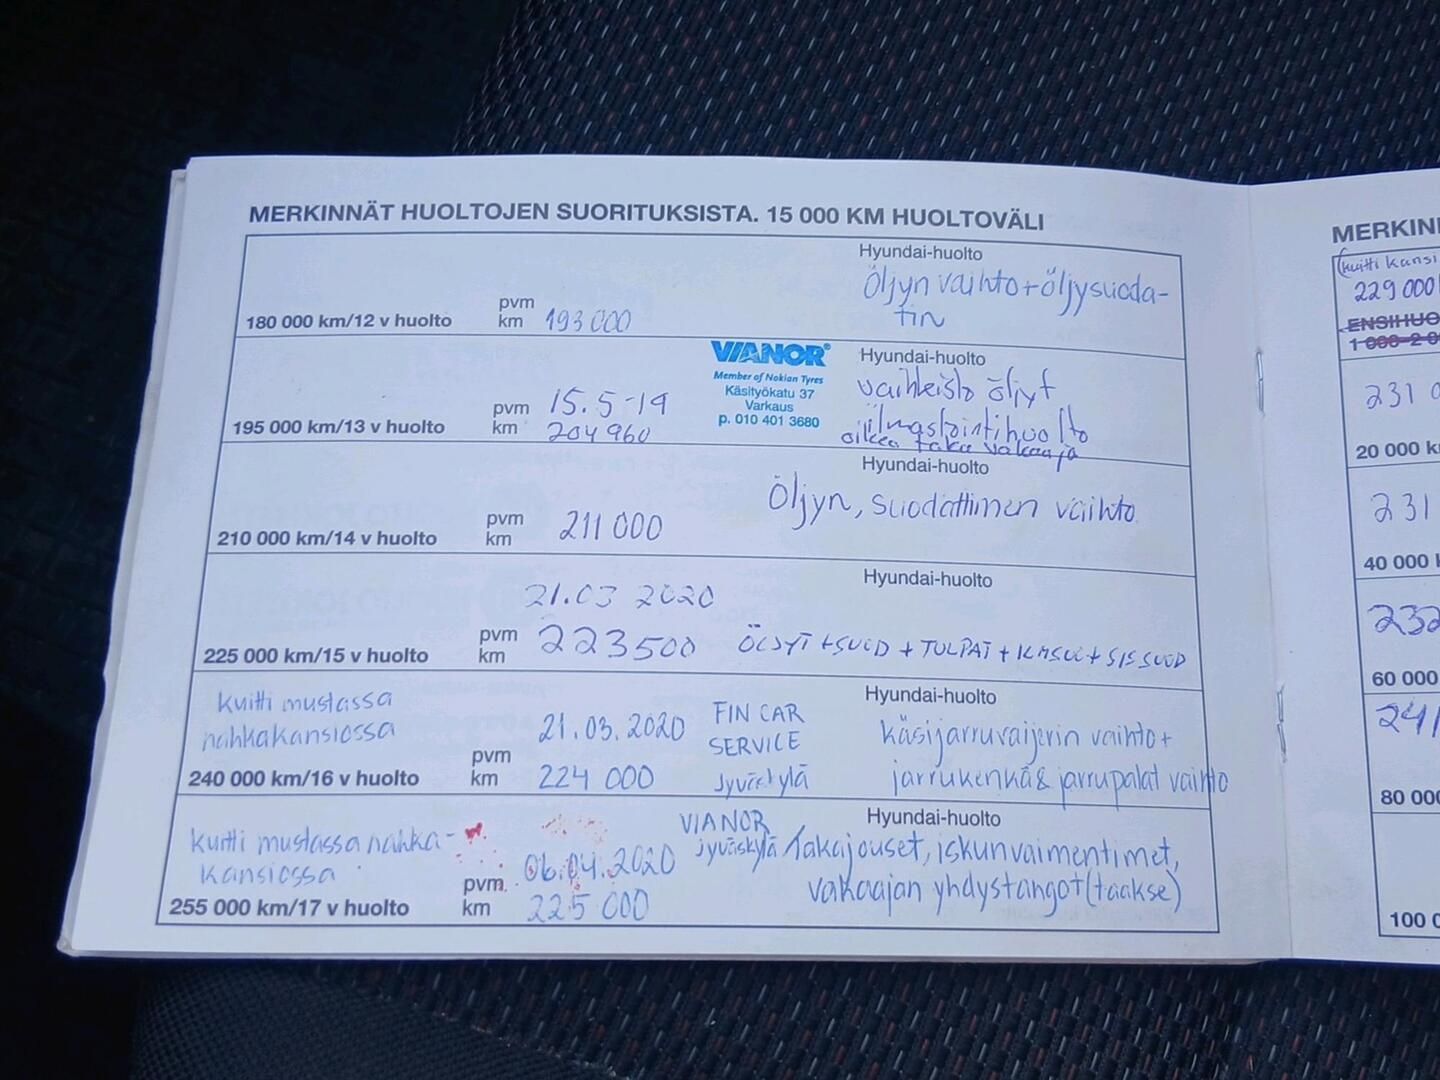 MERKINNÄT HUOLTOJEN SUORITUKSISTA. 15 000 KM HUOLTOVÄLI
Hyundai-huolto
Öljyn vaihto + öljysuoda-
tin
pvm
180 000 km/12 v huolto km 193 000
VIANOR
Member of Nokian Tyres
Käsityökatu 37
Varkaus
p. 010 401 3680
Hyundai-huolto
vaihteisto öljyt
ilmastointihuolto
oikea taka vakaaja
pvm 15.5-19
195 000 km/13 v huolto km 204 960
Hyundai-huolto
Öljyn, suodattimen vaihto
pvm
210 000 km/14 v huolto km 211 000
Hyundai-huolto
21.03 2020
pvm
225 000 km/15 v huolto km 223500 ÖLJYT + SUOD + TULPAT + KASUL + SISSUOD
Hyundai-huolto
kuitti mustassa
nahkakansiossa
pvm 21.03.2020
240 000 km/16 v huolto km 224 000
FIN CAR
SERVICE
Jyväskylä
käsijarruvaijerin vaihto +
jarrukenkä & jarrupalat vaihto
Hyundai-huolto
kuitti mustassa nahka-
kansiossa
pvm 06.04.2020
255 000 km/17 v huolto km 225 000
VIANOR
Jyväskylä
Takajouset, iskunvaimentimet,
vakaajan yhdystangot (taakse)
MERKIN
(kuitti kansi
229 000
ENSIHUO
231 0
20 000 k
231
40 000
232
60 000
241
80 000
100 0